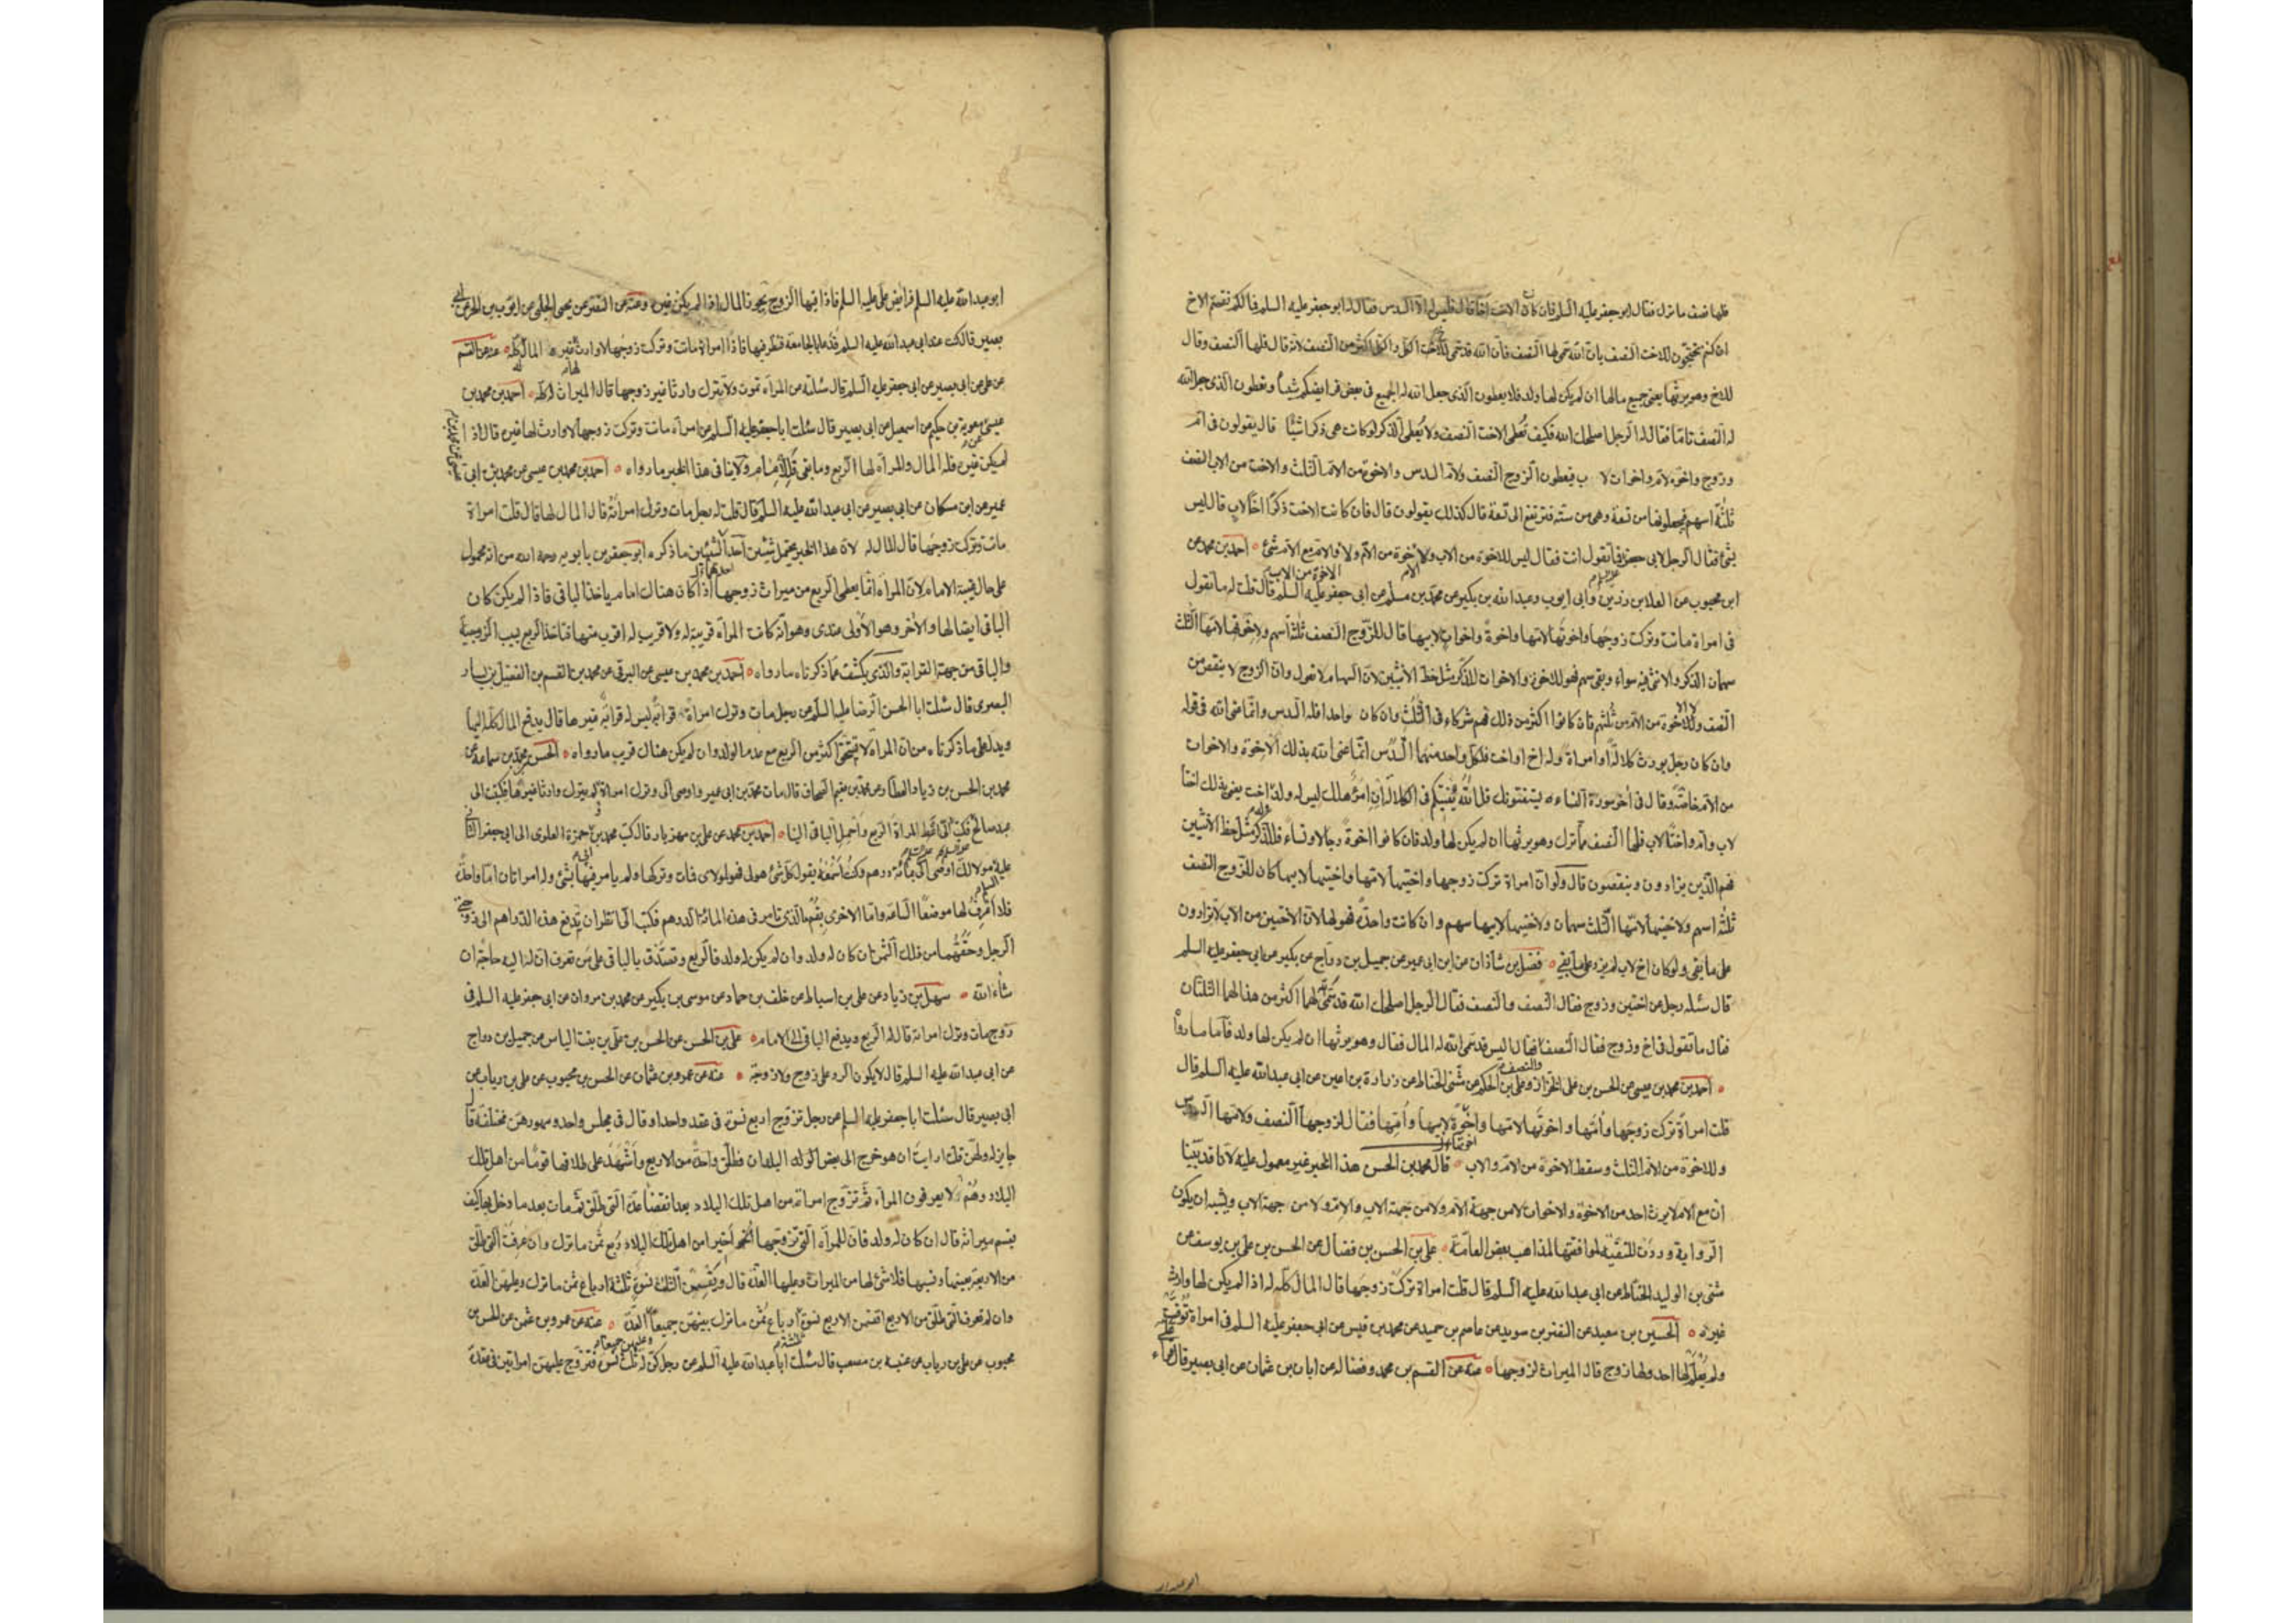 فلها نصف ما ترك فقال ابو جعفر عليه السلم فان كان الاخت اخا قال فليس له الا السدس فقال له ابو جعفر عليه السلم فما لكم نقصتم الاخ
ان كنتم تحتجّون للاخت النصف بانّ الله سمّى لها النصف فانّ الله قد سمّى للاخ الكل والكل اكثر من النصف لانه قال فلها النصف وقال
للاخ وهو يرثها يعنى جميع مالها ان لم يكن لها ولد فلا يعطون الذى جعل الله له الجميع فى بعض فرايضكم شيئاً وتعطون الذى جعل الله
له النصف تامّا فقال له الرجل اصلحك الله فكيف تعطى الاخت النصف ولا يُعطى الذكر لو كانت هى ذكرا شيئًا قال يقولون فى ام
وزوج واخوة لام واخوات لاب يعطون الزوج النصف والام السدس والاخوة من الام الثلث والاخت من الاب النصف
ثلثة اسهم فيجعلونها من تسعة وهى من ستة فترتفع الى تسعة قال كذلك يقولون قال فان كانت الاخت ذكرًا اخًا لاب قال ليس
شئ فقال الرجل لابى جعفر فما تقول انت فقال ليس للاخوة من الاب والام ولا الاخوة من الام ولا الاخوة من الاب مع الام شئ ٥ احمد بن محمد عن
ابن محبوب عن العلا بن رزين وابى ايوب وعبد الله بن بكير عن محمد بن مسلم عن ابى جعفر عليه السلم قال قلت له ما تقول
فى امراة ماتت وتركت زوجها واخوتها لامها واخوة واخوات لابيها قال للزّوج النصف ثلثة اسهم ولاخوتها لامها الثلث
سهمان الذكر والانثى فيه سواء وبقى سهم فهو للاخوة والاخوات للذكر مثل حظّ الانثيين لانّ السهام لا تعول وانّ الزوج لا ينقص من
النصف ولا الاخوة من الام من ثلثهم فان كانوا اكثر من ذلك فهم شركاء فى الثُلُث وان كان واحدا فله السدس وانّما عنى الله فى قوله
وان كان رجل يورث كلالةً او امراة وله اخ او اخت فلكل واحد منهما السُدُس انّما عنى الله بذلك الاخوة والاخوات
من الام خاصّة وقال فى آخر سورة النساء يستفتونك قل الله يُفتيكم فى الكلالة اِنِ امرؤٌ هلك ليس له ولد وله اخت يعنى بذلك اختاً
لاب وام واختًا لاب فلها النصف ممّا ترك وهو يرثها ان لم يكن لها ولد فان كانوا اخوةً رجالا ونساء فللذكر مثل حظ الانثيين
فهم الّذين يزادون وينقصون قال ولو انّ امراة تركت زوجها واختيها لامها واختيها لابيها كان للزّوج النصف
ثلثة اسهم ولاختيها لامّها الثلث سهمان ولاختيها لابيها سهم وان كانت واحدة فهو لها لانّ الاختين من الاب لا يزادون
على ما بقى ولو كان اخ لاب لم يزد على ما بقى ٥ فضل بن شاذان عن ابن ابى عمير عن جميل بن درّاج عن بكير عن ابى جعفر عليه السلم
قال سئله رجل عن اختين وزوج فقال النصف والنصف فقال الرجل اصلحك الله قد سَمّى الله لهما اكثر من هذا لهما الثلثان
فقال ما تقول فى اخ وزوج فقال النصف والنصف فقال اليس قد سمّى الله له المال فقال وهو يرثها ان لم يكن لها ولد
٥ احمد بن محمد بن عيسى عن الحسن بن على الخزاز وعلى بن الحكم عن مثنى الحنّاط عن زرارة بن اعين عن ابى عبد الله عليه السلم قال
قلت امراةٌ تركت زوجَها وامّها واخوتَها لامها واخوةً لابيها واُمّها فقال لزوجها النصف ولامّها السدس
وللاخوة من الام الثلث وسقط الاخوة من الام والاب ٥ قال محمد بن الحسن هذا الخبر غير معمول عليه لانّا قد بيّنا
انّ مع الام لا يرث احد من الاخوة والاخوات لا من جهة الام ولا من جهة الاب والام ولا من جهة الاب ويشبه ان يكون
الرّواية وردت للتقيّة لموافقتها لمذاهب بعض العامّة ٥ على بن الحسن بن فضال عن الحسن بن على بن يوسف عن
مثنى بن الوليد الحنّاط عن ابى عبد الله عليه السلم قال قلت امراة تركت زوجها قال المال كلّه له اذا لم يكن لها وارث
غيره ٥ الحسين بن سعيد عن النضر بن سويد عن عاصم بن حميد عن محمد بن قيس عن ابى جعفر عليه السلم فى امراة توفّيت
ولم يُعلم لها احد ولها زوج قال الميراث لزوجها ٥ عنه عن القسم بن محمد وفضاله عن ابان بن عثمان عن ابى بصير قال قرأ على
ابو عبد الله عليه السلم فرايض على عليه السلم فاذا فيها الزوج يحوز المال اذا لم يكن غيره ٥ وعنه عن النضر عن يحيى الحلبى عن ايوب بن الحر عن ابى
بصير قال كنت عند ابى عبد الله عليه السلم فدعا بالجامعة فنظر فيها فاذا امراة ماتت وتركت زوجها لا وارث لها غيره المال له كله ٥ عنه عن القسم
عن على عن ابى بصير عن ابى جعفر عليه السلم قال سئلته عن المراة تموت ولا تترك وارثا غير زوجها قال الميراث له كلّه ٥ احمد بن محمد بن
عيسى عن معوية بن حكيم عن اسمعيل عن ابى بصير قال سئلت ابا جعفر عليه السلم عن امراة ماتت وتركت زوجها لا وارث لها غيره قال اذا
لم يكن غيره فله المال والمراة لها الربع وما بقى فللامام ولا ينافى هذا الخبر ما رواه ٥ احمد بن محمد بن عيسى عن محمد بن ابى
عمير عن ابن مسكان عن ابى بصير عن ابى عبد الله عليه السلم قال قلت له رجل مات وترك امراتهُ قال المال لها قال قلت امراة
ماتت وتركت زوجها قال المال له لانّ هذا الخبر يحتمل شيئين احد الشيئين ما ذكره ابو جعفر بن بابويه رحمه الله من انه محمول
على حال غيبة الامام لانّ المراة انّما يعطى الربع من ميراث زوجها اذا كان هناك امام ياخذ الباقى فاذا لم يكن كان
الباقى ايضا لها والآخر وهو الاولى عندى وهو انّه كانت المراة قريبة له ولا قريب له اقرب منها فتاخذ الربع بسبب الزوجية
والباقى من جهة القرابة والّذى يكشف عمّا ذكرناه ما رواه ٥ احمد بن محمد بن عيسى عن البرقى عن محمد بن القسم بن الفضيل بن يسار
البصرى قال سئلت ابا الحسن الرضا عليه السلم عن رجل مات وترك امراة قرابة ليس له قرابة غيرها قال يدفع المال كله اليها
ويدل على ما ذكرناه من انّ المراة لا تستحق اكثر من الربع مع عدم الولد وان لم يكن هناك قريب ما رواه ٥ الحسن بن محمد بن سماعة عن
محمد بن الحسن بن زياد العطّار عن محمد بن نعيم الصحاف قال مات محمد بن ابى عمير واوصى الىّ وترك امراة لم يترك وارثا غيرها فكتبت الى
عبد صالح فكتب الىّ اعط المراة الربع واحمل الباقى الينا ٥ احمد بن محمد عن على بن مهزيار قال كتب محمد بن حمزة العلوى الى ابى جعفر الثانى
عليه السلم مولا لك اوصى الىّ بمائة درهم وكنت اسمعه يقول كل شئ هو لى فهو لمولاى فمات وتركها ولم يامر فيها بشئ وله امراتان امّا واحدة
فلا اعرف لها موضعًا الساعة وامّا الاخرى بقم ما الذى تامر فى هذه المائة الدرهم فكتب الىّ انظر ان تدفع هذه الدراهم الى زوجتى
الرجل وحقّهما من ذلك الثمن ان كان له ولد وان لم يكن له ولد فالربع وتصدّق بالباقى على من تعرف انّ له اليه حاجة ان
شاء الله ٥ سهل بن زياد عن على بن اسباط عن خلف بن حماد عن موسى بن بكير عن محمد بن مروان عن ابى جعفر عليه السلم فى
زوج مات وترك امراته قال لها الربع ويدفع الباقى الى الامام ٥ على بن الحسن عن الحسن بن على بن بنت الياس عن جميل بن دراج
عن ابى عبد الله عليه السلم قال لا يكون الرد على زوج ولا زوجة ٥ عنه عن عمرو بن عثمان عن الحسن بن محبوب عن على بن رياب عن
ابى بصير قال سئلت ابا جعفر عليه السلم عن رجل تزوّج اربع نسوة فى عقد واحد او قال فى مجلس واحد ومهورهن مختلفة قال
جايز له ولهن قلت ارايت ان هو خرج الى بعض البلدان فطلّق واحدة من الاربع واَشْهَدَ على طلاقها قومًا من اهل تلك
البلاد وهُمْ لا يعرفون المراة ثم تزوّج امراة من اهل تلك البلاد بعد انقضاء عدّة الّتى طلّق ثمّ مات بعد ما دخل بها كيف
يقسم ميراثه قال ان كان له ولد فانّ للمراة الّتى تزوّجها اخيرا من اهل تلك البلاد ربع ثمن ما ترك وان عرفت الّتى طلّق
من الاربع بعينها ونسبها فلا شئ لها من الميراث وعليها العدّة قال ويقسمن الثلث نسوة ثلثة ارباع ثمن ما ترك وعليهن العدّة
وان لم تعرف الّتى طلّق من الاربع اقتسمن الاربع نسوة ثلثة ارباع ثُمُن ما ترك بينهنّ جميعًا وعليهن جميعا العدّة ٥ عنه عن عمرو بن عثمن عن الحسن بن
محبوب عن على بن رياب عن عنبسه بن مصعب قال سئلت ابا عبد الله عليه السلم عن رجل كنّ له ثلث نسوة فتزوّج عليهنّ امراتين فى عقدة